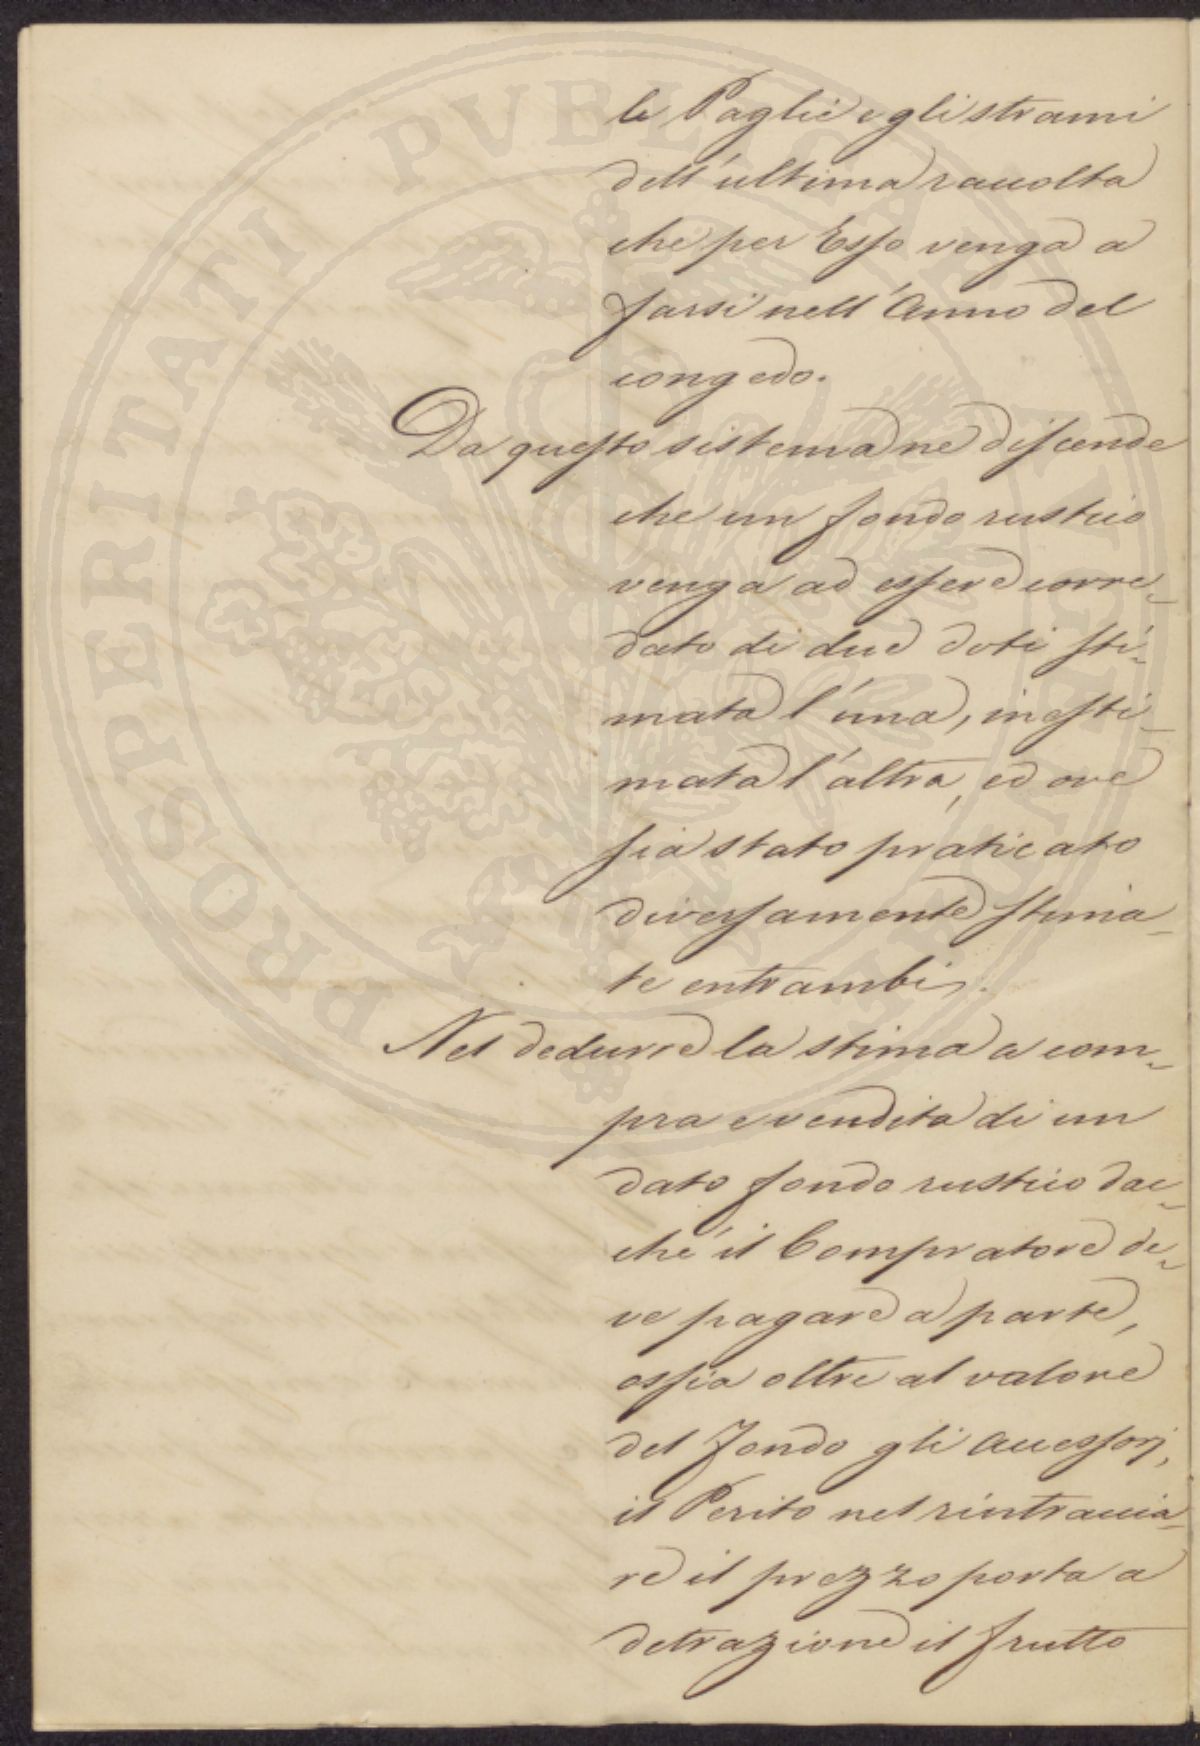 le Paglie e gli strami
dell'ultima raccolta
che per Esso venga a
farsi nell'Anno del
congedo.
Da questo sistema ne discende
che un fondo rustico
venga ad essere corre-
dato di due doti sti-
mata l'una, inesti-
mata l'altra, ed ove
sia stato praticato
diversamente stima-
te entrambi.
Nel dedurre la stima a com-
pra e vendita di un
dato fondo rustico dac-
ché il Compratore de-
ve pagare a parte,
ossia oltre al valore
del Fondo gli accessorj,
il Perito nel rintraccia-
re il prezzo porta a
detrazione il frutto
PROSPERITATI PVBLICAE AVGENDAE